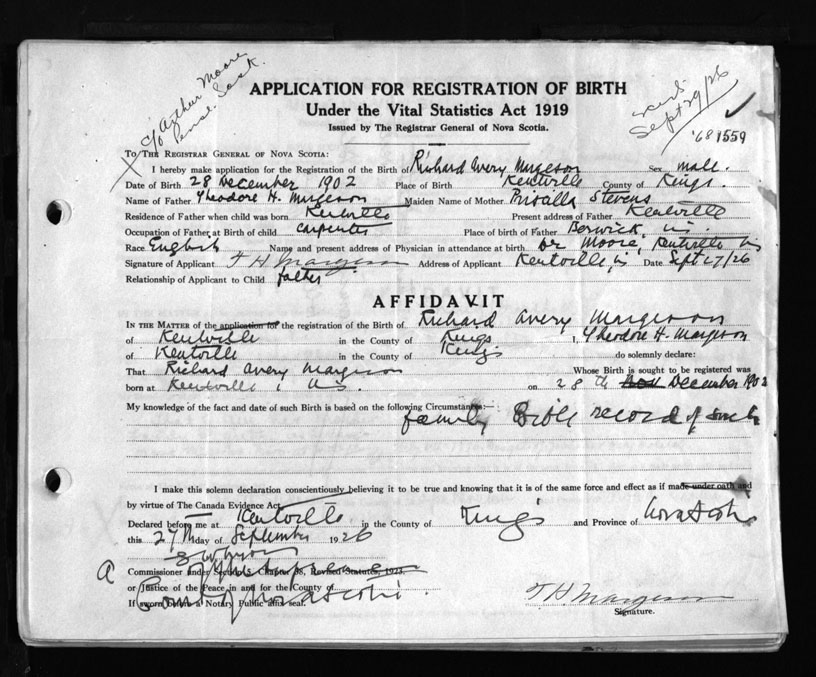 c/o Arthur Moore
Pense. Sask.
APPLICATION FOR REGISTRATION OF BIRTH
Under the Vital Statistics Act 1919
Issued by The Registrar General of Nova Scotia.
sent
Sept 29/26
'681559
To The Registrar General of Nova Scotia:
I hereby make application for the Registration of the Birth of Richard Avery Margeson Sex male.
Date of Birth 28 December 1902 Place of Birth Kentville County of Kings.
Name of Father Theodore H. Margeson Maiden Name of Mother Prisalla Stevens
Residence of Father when child was born Kentville Present address of Father Kentville
Occupation of Father at Birth of child Carpenter Place of birth of Father Berwick,
Race English Name and present address of Physician in attendance at birth. Dr Moore, Kentville
Signature of Applicant T H Margeson Address of Applicant Kentville, Date Sept 27/26
Relationship of Applicant to Child father
AFFIDAVIT
In the Matter of the application for the registration of the Birth of Richard Avery Margeson
of Kentville in the County of Kings I, Theodore H. Margeson
of Kentville in the County of Kings do solemnly declare:
That Richard Avery Margeson Whose Birth is sought to be registered was
born at Kentville, on 28th December 1902
My knowledge of the fact and date of such Birth is based on the following Circumstances:—
family Bible record of such
I make this solemn declaration conscientiously believing it to be true and knowing that it is of the same force and effect as if made under oath and
by virtue of The Canada Evidence Act.
Declared before me at Kentville in the County of Kings and Province of Nova Scotia
this 27th day of September 1926
A Commissioner under Section Chapter 38, Revised Statutes, 1923.
or Justice of the Peace in and for the County of
If sworn before a Notary Public affix seal.
T. H. Margeson
Signature.